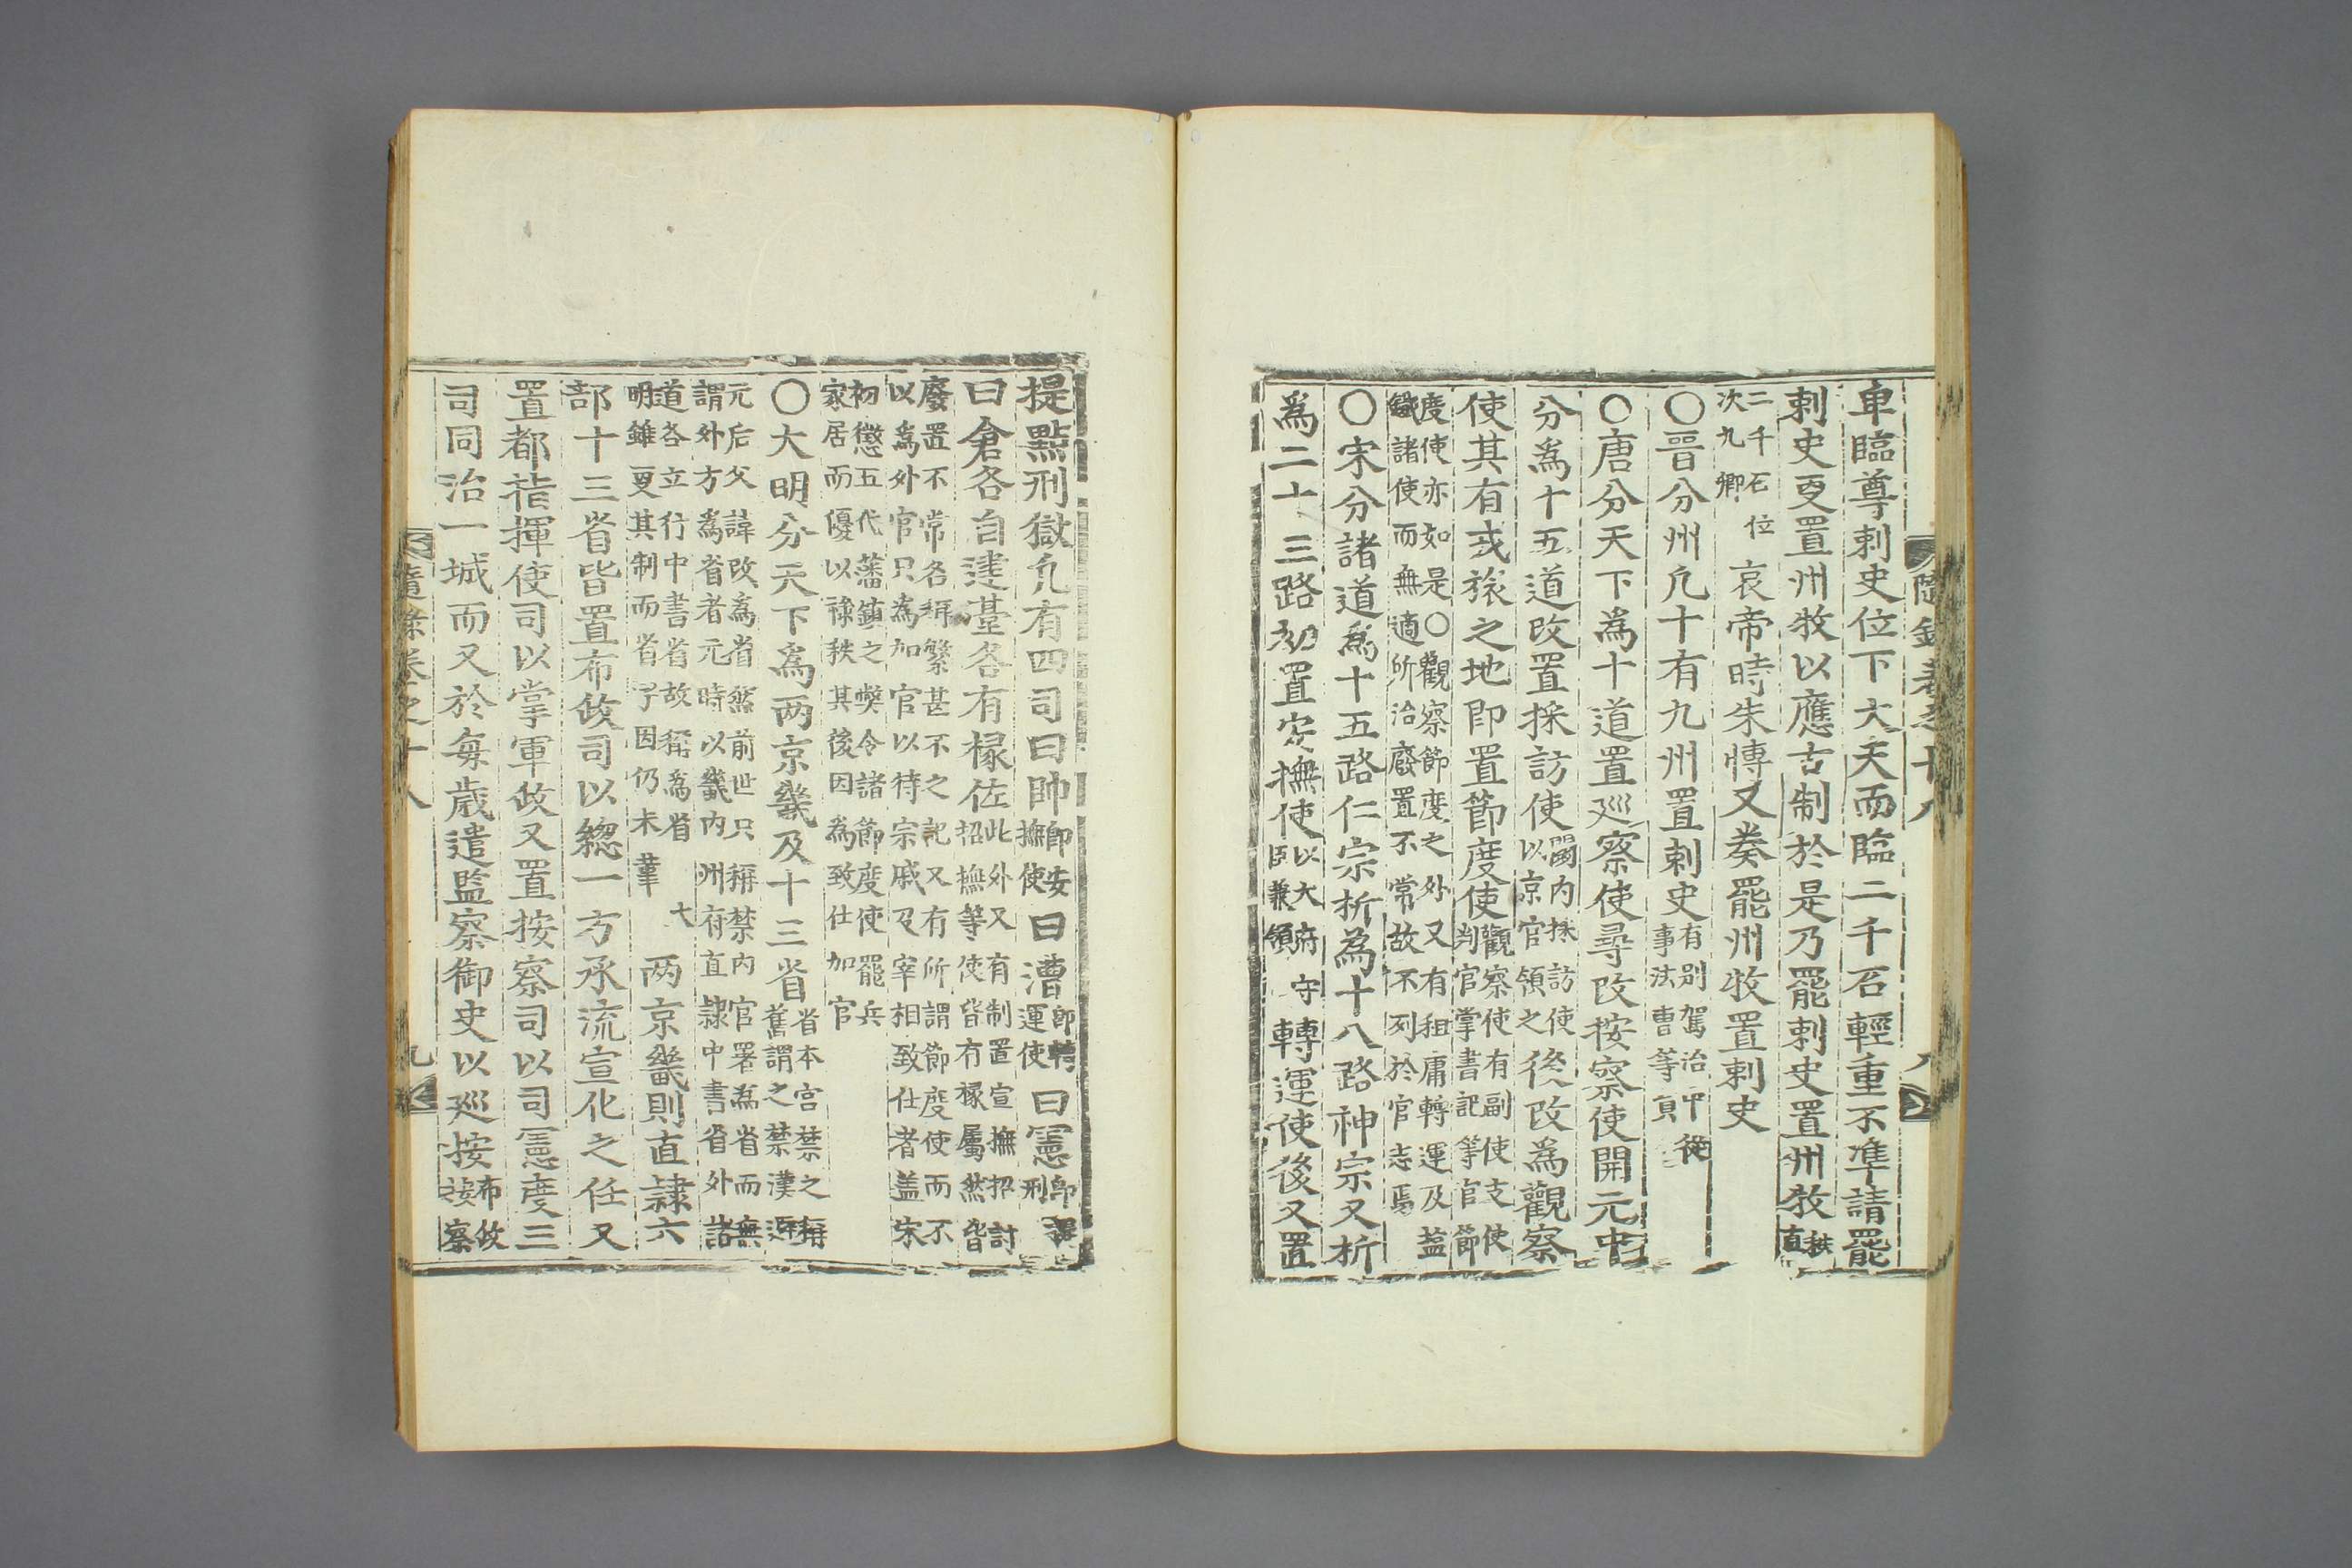 隨録卷之十八
八
卑臨尊刺史位下大夫而臨二千石輕重不準請罷
刺史更置州牧以應古制於是乃罷刺史置州牧秩直
二千石位
次九卿
哀帝時朱慱又奏罷州牧置刺史
〇晋分州凢十有九州置刺史有别駕治中從
事法曹等員
〇唐分天下爲十道置廵察使尋改按察使開元中
分爲十五道改置採訪使關内採訪使
以京官領之
後改爲觀察
使其有戎旅之地即置節度使觀察使有副使支使
判官掌書記等官節
度使亦如是〇觀察節度之外又有租庸轉運及益
鐵諸使而無適所治廢置不常故不列於官志焉
〇宋分諸道爲十五路仁宗析爲十八路神宗又析
爲二十三路初置安撫使以大府守
臣兼領
轉運使後又置
提點刑獄凢有四司曰帥即安
撫使
曰漕即轉
運使
曰憲即提
刑
曰倉各自建䑓各有椽佐此外又有制置宣撫招討
招撫等使皆有椽屬然皆
廢置不常名稱繁甚不之記又有所謂節度使而不
以爲外官只爲加官以待宗戚及宰相致仕者盖宋
初懲五代藩鎭之獘令諸節度使罷兵
家居而優以祿秩其後因爲致仕加官
〇大明分天下爲两京畿及十三省省本宮禁之稱
舊謂之禁漢避
元后父諱改爲省然前世只稱禁内官署爲省而無
謂外方爲省者元時以畿内州府直隷中書省外諸
道各立行中書省故稱爲省大
明雖更其制而省字因仍未革
两京畿則直隷六
部十三省皆置布政司以緫一方承流宣化之任又
置都指揮使司以掌軍政又置按察司以司憲度三
司同治一城而又於每歳遣監察御史以廵按布政
按察
隨錄卷之十八
九